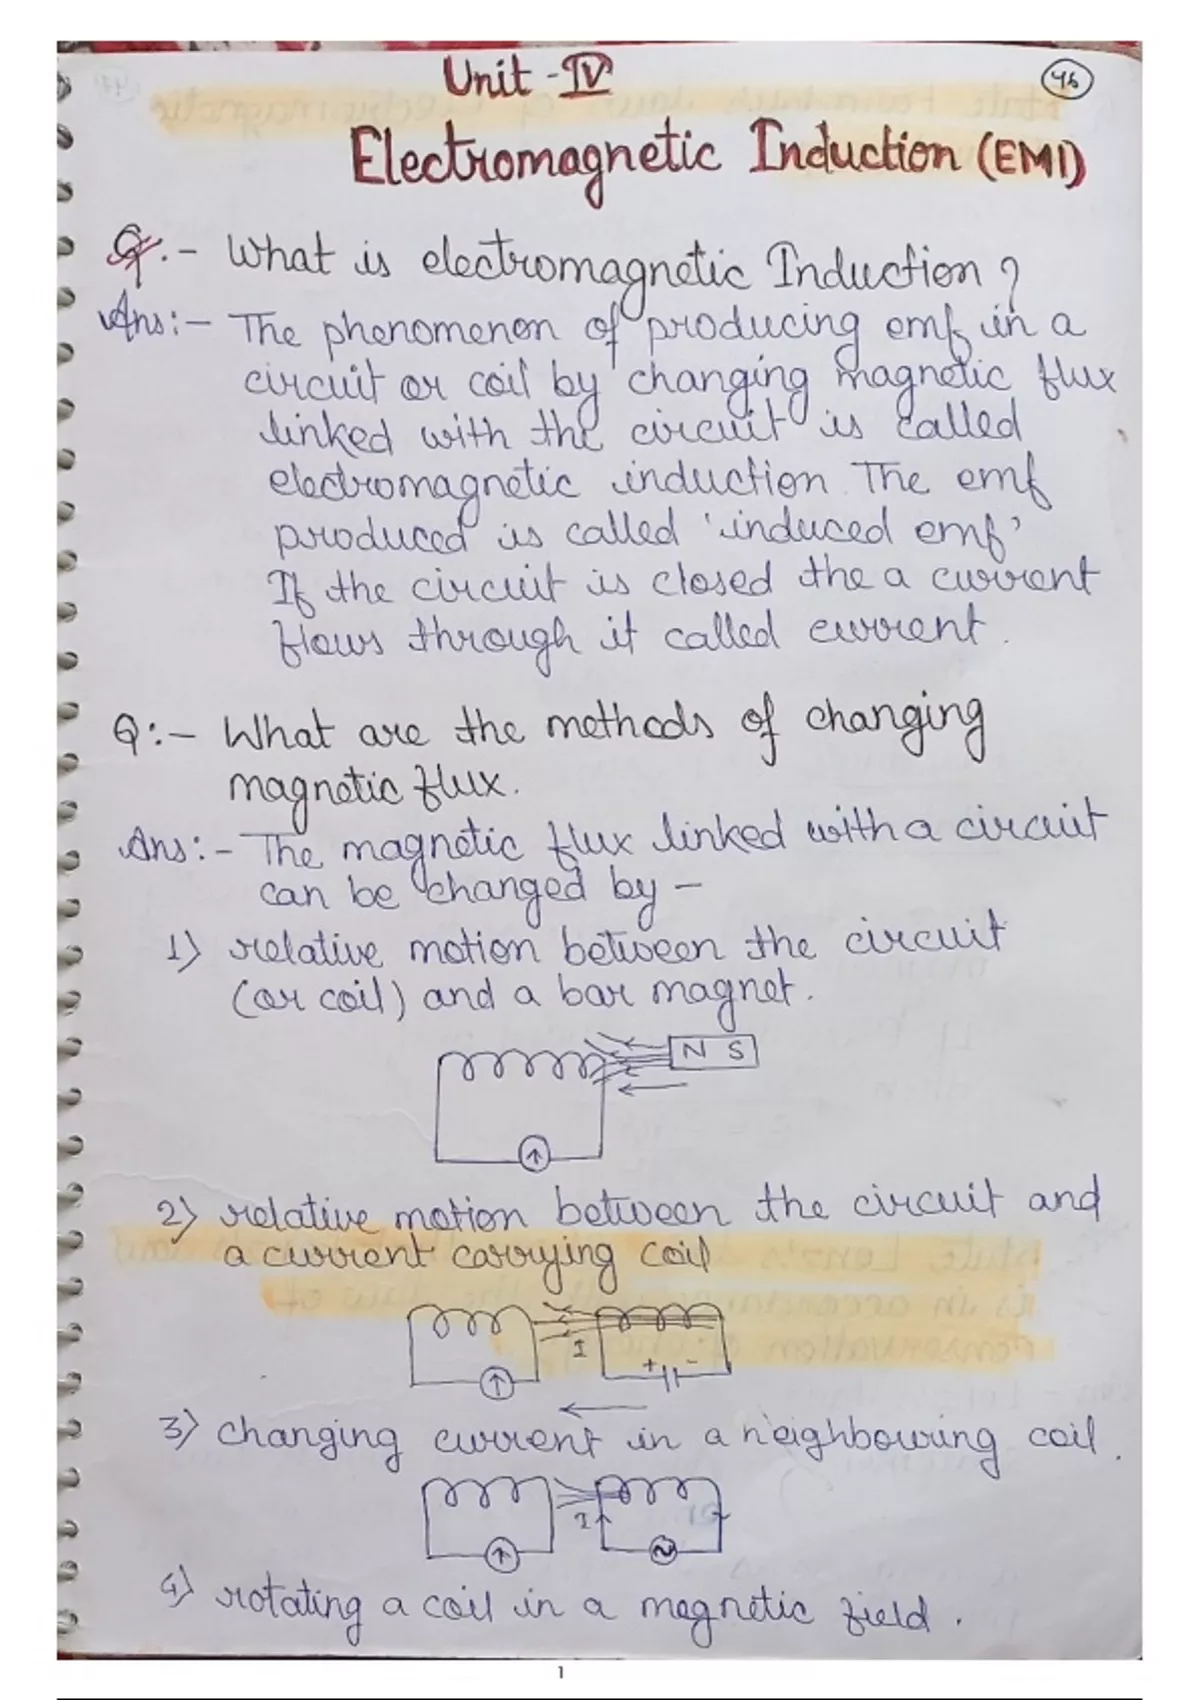 Unit - IV
46
Electromagnetic Induction (EMI)
Q:- What is electromagnetic Induction ?
Ans:- The phenomenon of producing emf in a
circuit or coil by changing magnetic flux
linked with the circuit is called
electromagnetic induction. The emf
produced is called 'induced emf'
If the circuit is closed the a current
flows through it called current.
Q:- What are the methods of changing
magnetic flux.
Ans:- The magnetic flux linked with a circuit
can be changed by -
1) relative motion between the circuit
(or coil) and a bar magnet.
N S
2) relative motion between the circuit and
a current carrying coil
I
+ -
3) changing current in a neighbouring coil.
I
4) rotating a coil in a magnetic field.
1